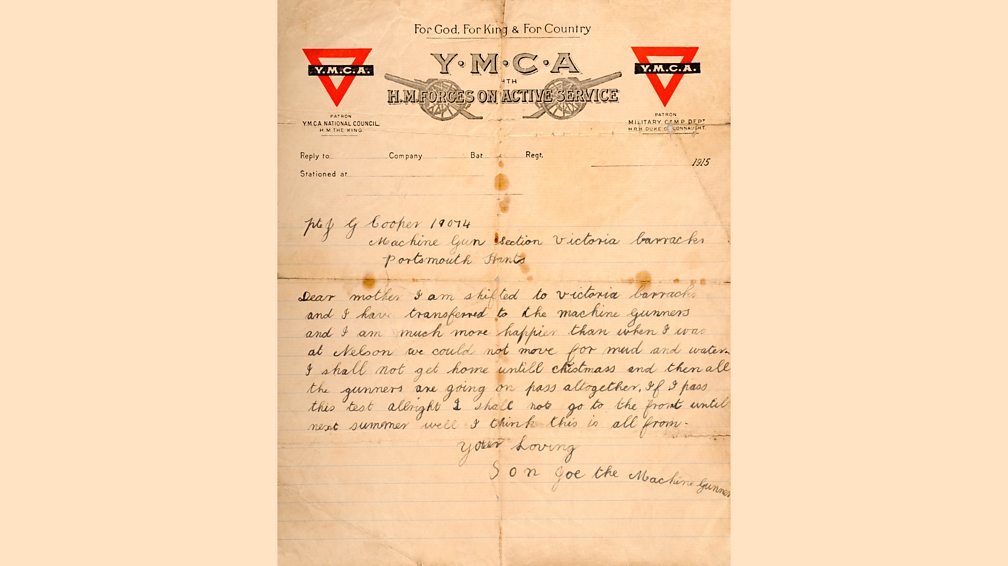 For God, For King & For Country
Y·M·C·A
WITH
H.M. FORCES ON ACTIVE SERVICE
Y.M.C.A.
PATRON
Y.M.C.A. NATIONAL COUNCIL.
H.M. THE KING.
Y.M.C.A.
PATRON
MILITARY CAMP DEPT
H.R.H. DUKE OF CONNAUGHT.
Reply to Company Bat Regt. 1915
Stationed at
pte J G Cooper 19074
Machine Gun section Victoria barracks
Portsmouth Hants
Dear mother I am shifted to victoria barracks
and I have transferred to the machine gunners
and I am much more happier than when I was
at Nelson we could not move for mud and water.
I shall not get home untill christmass and then all
the gunners are going on pass altogether, If I pass
this test allright I shall not go to the front until
next summer well I think this is all from.
Your Loving
Son Joe the Machine Gunner